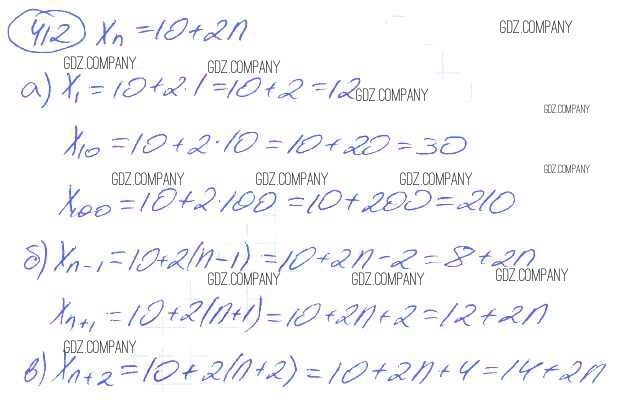 412 Xn = 10 + 2n
GDZ.COMPANY
GDZ.COMPANY GDZ.COMPANY
а) X1 = 10 + 2·1 = 10 + 2 = 12
GDZ.COMPANY
GDZ.COMPANY
X10 = 10 + 2·10 = 10 + 20 = 30
GDZ.COMPANY
GDZ.COMPANY GDZ.COMPANY GDZ.COMPANY
X100 = 10 + 2·100 = 10 + 200 = 210
б) Xn-1 = 10 + 2(n-1) = 10 + 2n - 2 = 8 + 2n
GDZ.COMPANY GDZ.COMPANY GDZ.COMPANY
Xn+1 = 10 + 2(n+1) = 10 + 2n + 2 = 12 + 2n
GDZ.COMPANY
в) Xn+2 = 10 + 2(n+2) = 10 + 2n + 4 = 14 + 2n